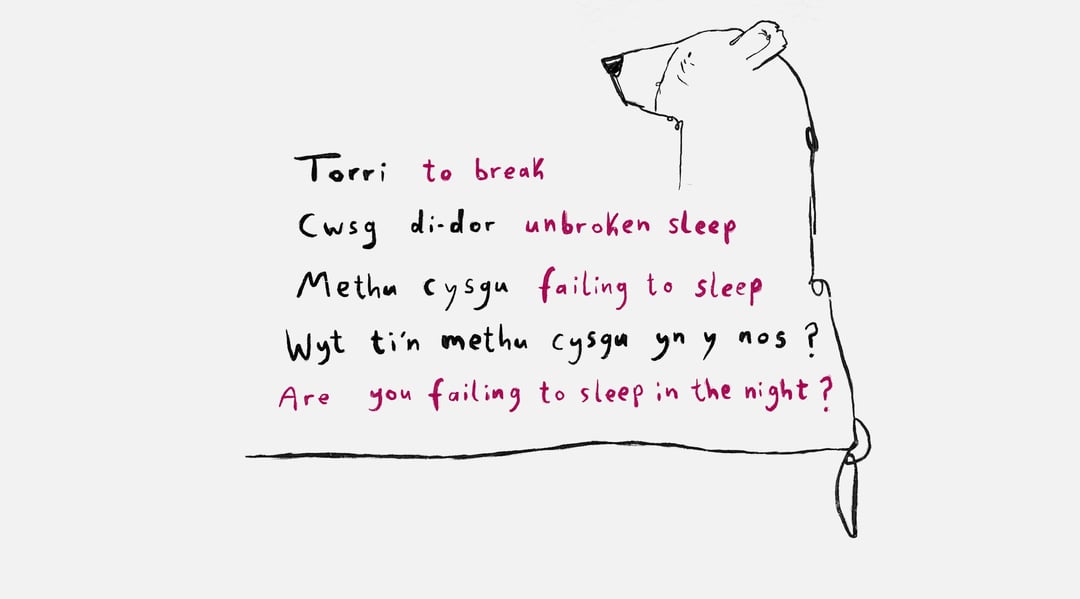 Torri to break
Cwsg di-dor unbroken sleep
Methu cysgu failing to sleep
Wyt ti'n methu cysgu yn y nos ?
Are you failing to sleep in the night ?